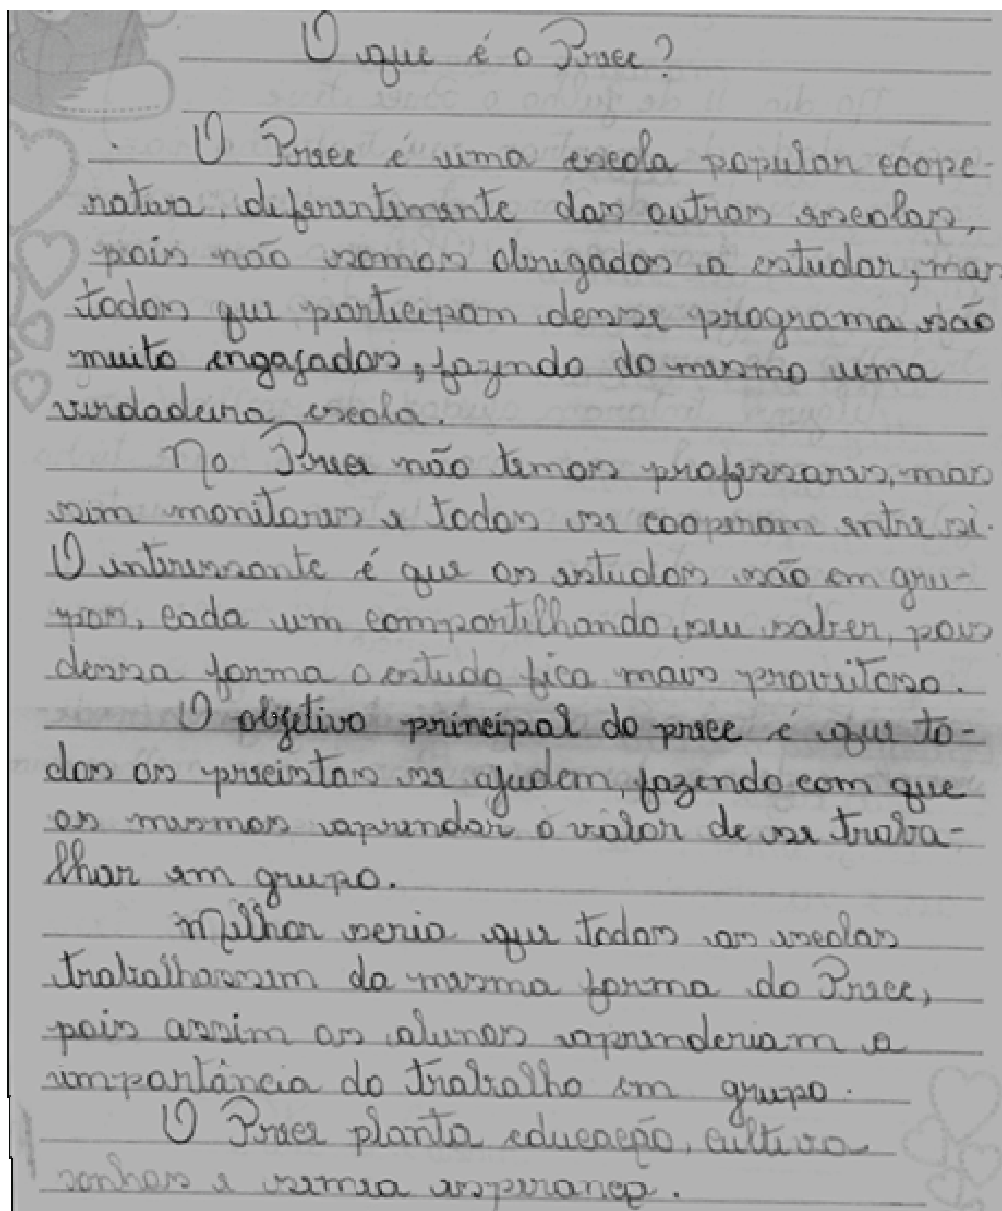 O que é o Prece?
O Prece é uma escola popular coope-
rativa, diferentemente das outras escolas,
pois não somos obrigados a estudar, mas
todos que participam desse programa são
muito engajados, fazendo do mesmo uma
verdadeira escola.
No Prece não temos professores, mas
sim monitores e todos se cooperam entre si.
O interessante é que os estudos são em gru-
pos, cada um compartilhando seu saber, pois
dessa forma o estudo fica mais proveitoso.
O objetivo principal do prece é que to-
dos os precistas se ajudem, fazendo com que
os mesmos aprendar o valor de se traba-
lhar em grupo.
Melhor seria que todas as escolas
trabalhassem da mesma forma do Prece,
pois assim os alunos aprenderiam a
importância do trabalho em grupo.
O Prece planta educação, cultiva
sonhos e semea esperança.